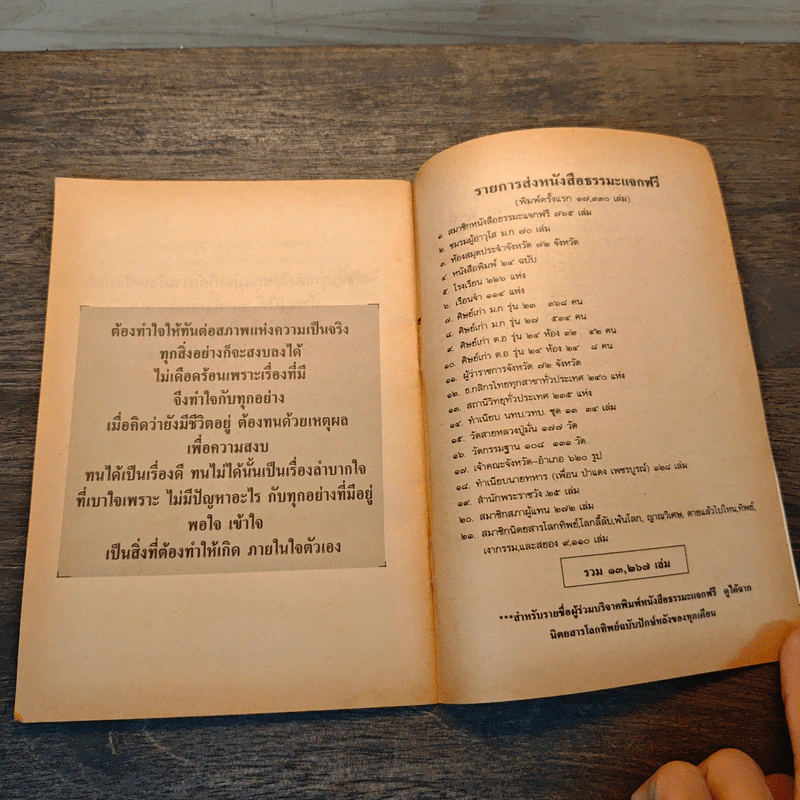 ต้องทำใจให้ทันต่อสภาพแห่งความเป็นจริง
ทุกสิ่งอย่างก็จะสงบลงได้
ไม่เดือดร้อนเพราะเรื่องที่มี
จึงทำใจกับทุกอย่าง
เมื่อคิดว่ายังมีชีวิตอยู่ ต้องทนด้วยเหตุผล
เพื่อความสงบ
ทนได้เป็นเรื่องดี ทนไม่ได้นั้นเป็นเรื่องลำบากใจ
ที่เบาใจเพราะ ไม่มีปัญหาอะไร กับทุกอย่างที่มีอยู่
พอใจ เข้าใจ
เป็นสิ่งที่ต้องทำให้เกิด ภายในใจตัวเอง
รายการส่งหนังสือธรรมะแจกฟรี
(พิมพ์ครั้งแรก ๑๗,๓๓๐ เล่ม)
๑. สมาชิกหนังสือธรรมะแจกฟรี ๗๖๕ เล่ม
๒. ชมรมผู้อาวุโส ม.ก ๗๐ เล่ม
๓. ห้องสมุดประจำจังหวัด ๗๒ จังหวัด
๔. หนังสือพิมพ์ ๒๔ ฉบับ
๕. โรงเรียน ๒๒๖ แห่ง
๖. เรือนจำ ๑๑๔ แห่ง
๗. ศิษย์เก่า ม.ก รุ่น ๒๓ ๓๖๘ คน
๘. ศิษย์เก่า ม.ก รุ่น ๒๗ ๕๓๔ คน
๙. ศิษย์เก่า ต.อ รุ่น ๒๔ ห้อง ๓๒ ๔๒ คน
๑๐. ศิษย์เก่า ต.อ รุ่น ๒๔ ห้อง ๒๔ ๘ คน
๑๑. ผู้ว่าราชการจังหวัด ๗๒ จังหวัด
๑๒. ธ.กสิกรไทยทุกสาขาทั่วประเทศ ๒๔๐ แห่ง
๑๓. สถานีวิทยุทั่วประเทศ ๒๓๕ แห่ง
๑๔. ทำเนียบ นทบ.วทบ. ชุด ๑๓ ๓๔ เล่ม
๑๕. วัดสายหลวงปู่มั่น ๑๗๗ วัด
๑๖. วัดกรรมฐาน ๑๐๘ ๑๓๑ วัด
๑๗. เจ้าคณะจังหวัด-อำเภอ ๖๒๐ รูป
๑๘. ทำเนียบนายทหาร (เพื่อน ป๋าแดง เพชรบูรณ์) ๑๒๘ เล่ม
๑๙. สำนักพระราชวัง ๒๕ เล่ม
๒๐. สมาชิกสภาผู้แทน ๒๗๒ เล่ม
๒๑. สมาชิกนิตยสารโลกทิพย์,โลกลี้ลับ,พ้นโลก, ญาณวิเศษ, ตายแล้วไปไหน,ทิพย์,
เงากรรม,และสยอง ๙,๑๑๐ เล่ม
รวม ๑๓,๒๖๗ เล่ม
***สำหรับรายชื่อผู้ร่วมบริจาคพิมพ์หนังสือธรรมะแจกฟรี ดูได้จาก
นิตยสารโลกทิพย์ฉบับปักษ์หลังของทุกเดือน